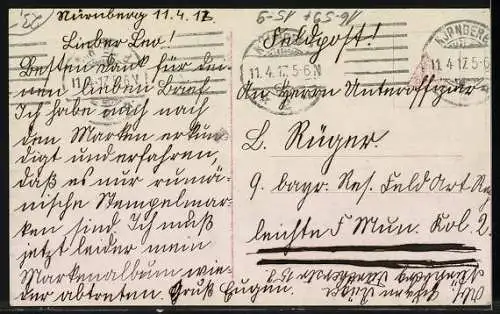 Nürnberg 11.4.17
Lieber Leo!
Besten Dank für dei
nen lieben Brief.
Ich habe auch nach
den Marken erkun
digt und erfahren,
daß es nur rumä
nische Stempelmar
ken sind. Ich muß
jetzt leider mein
Markenalbum wie
der abtreten. Gruß Eugen.
Feldpost!
NÜRNBERG
11.4.17.5-6N
NÜRNBERG
11.4.17.5-6
An Herrn Unteroffizier
L. Rüger.
9. bayr. Res. Feld Art. Reg
leichte F Mun. Kol. 2.
Abs.
Eugen Rüger
Nürnberg